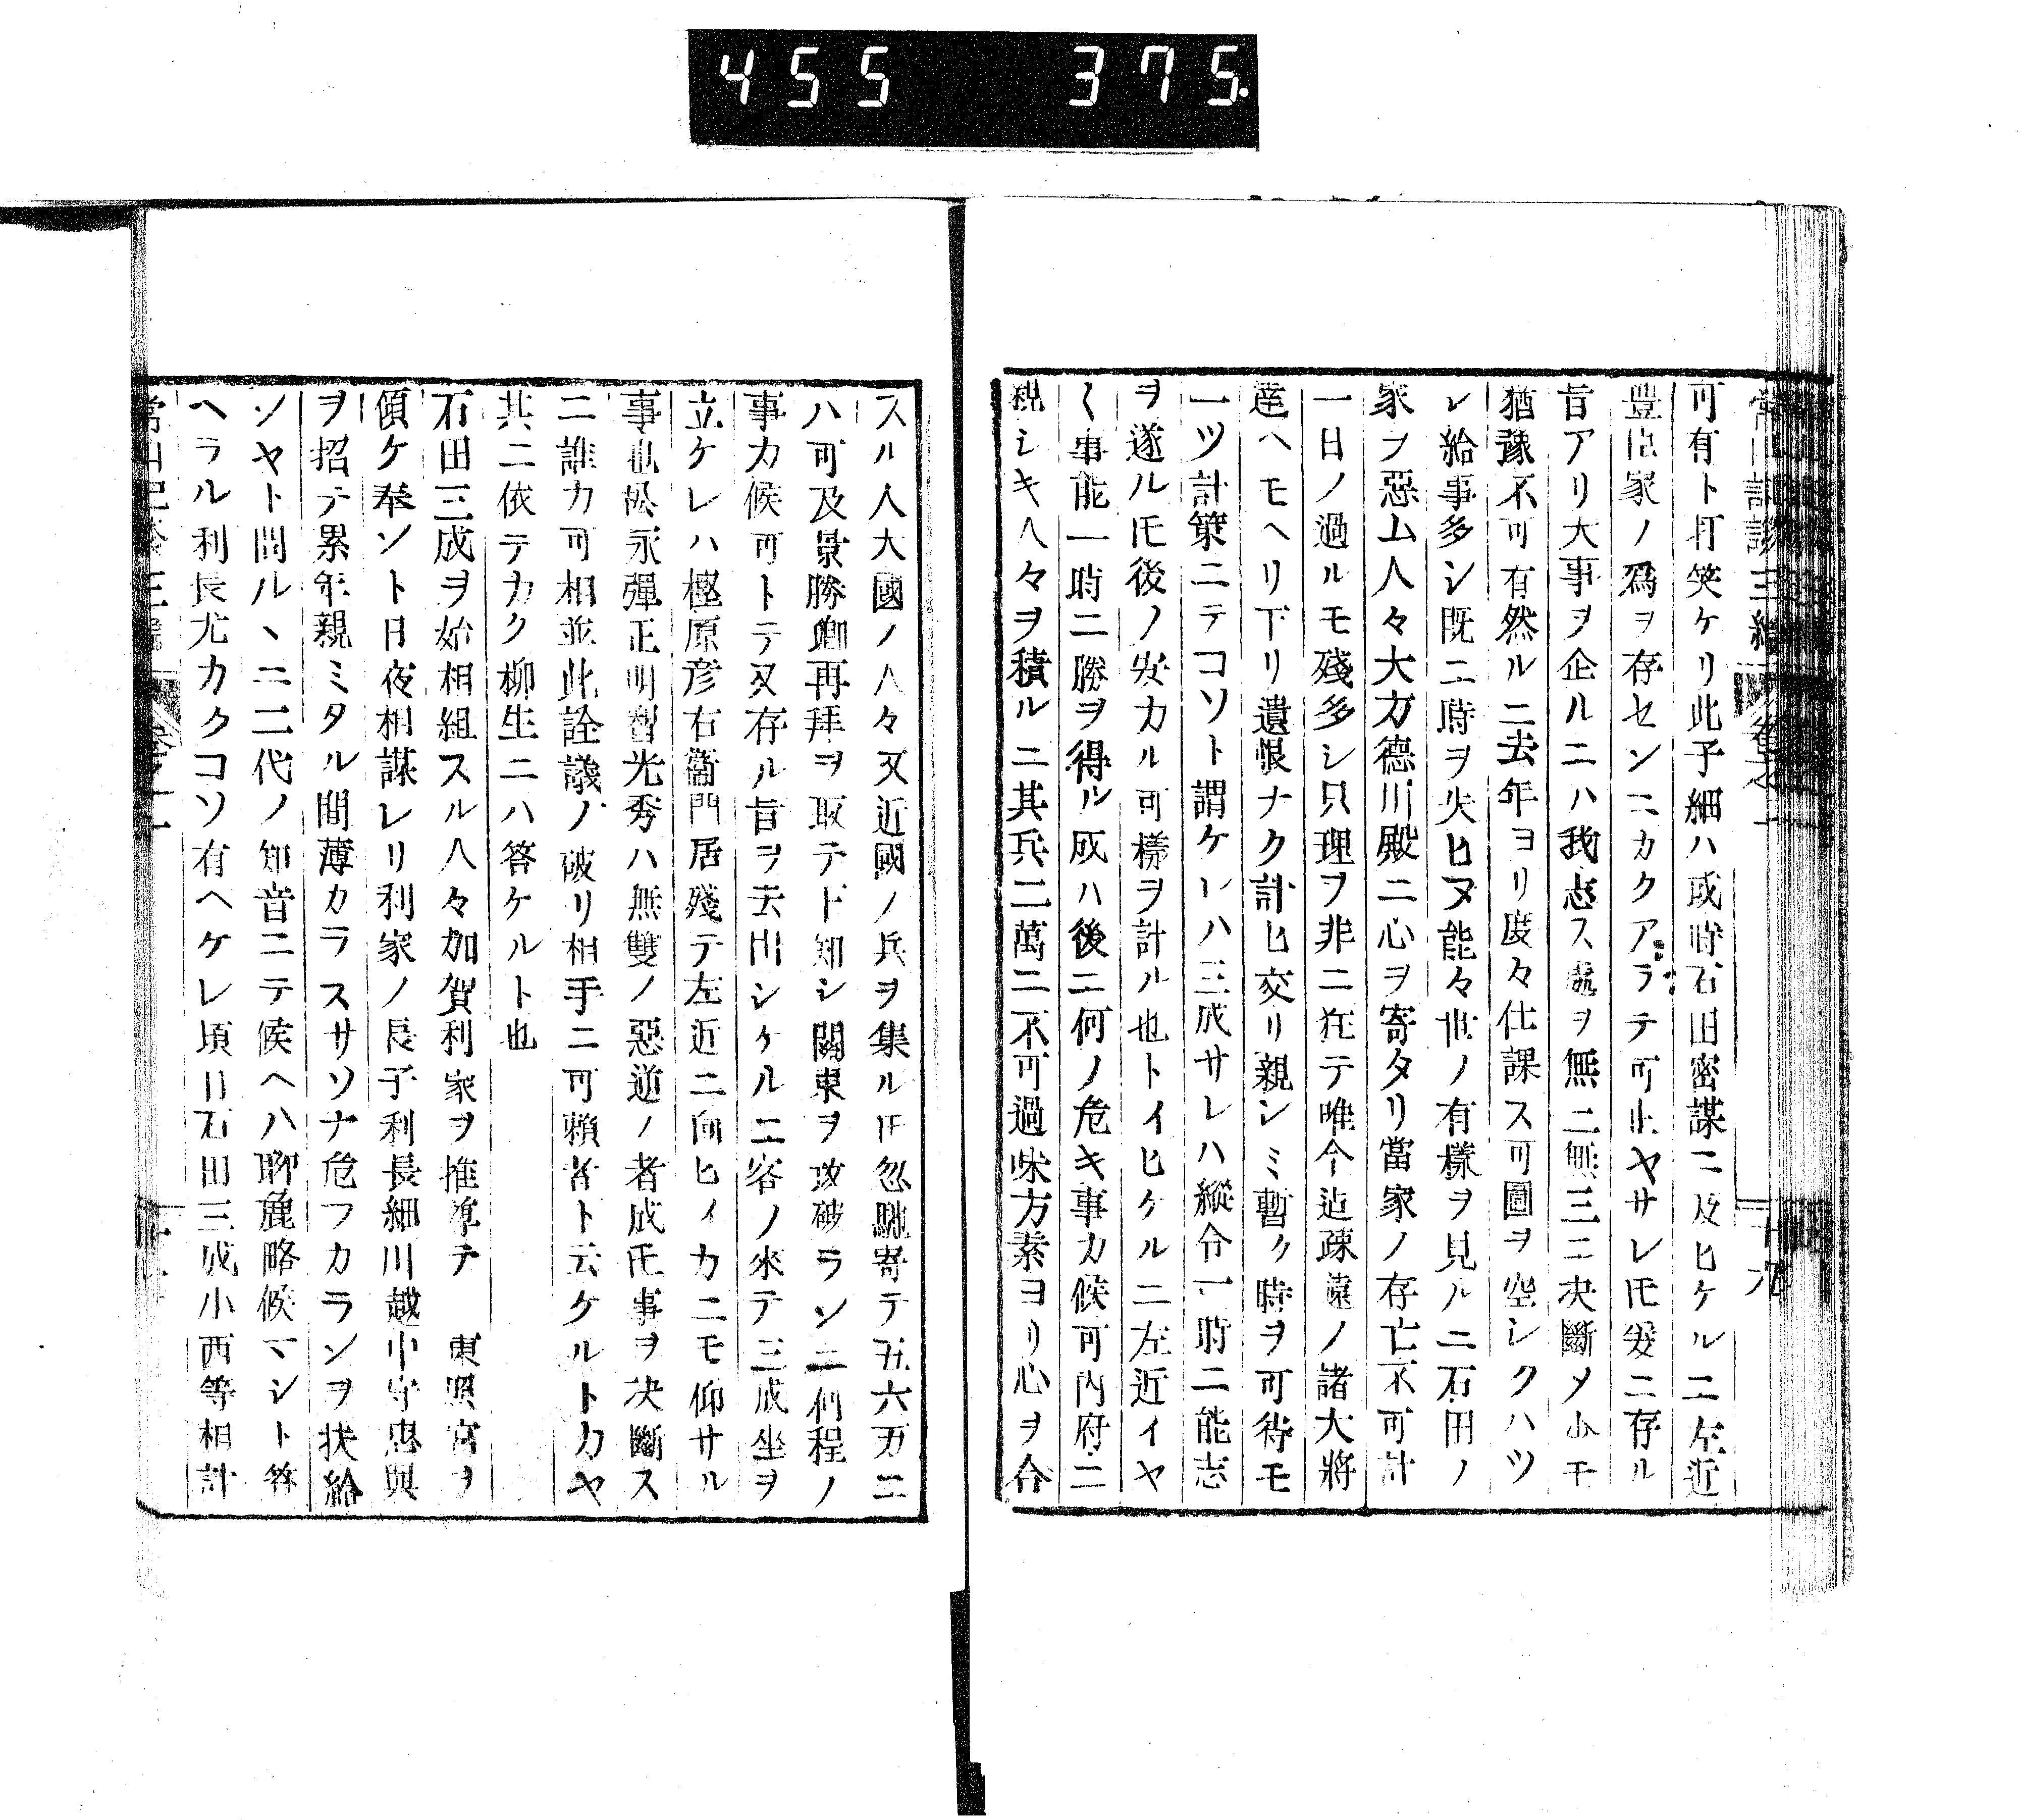 455 375.
可有ト打笑ケリ此子細ハ或時石田密謀ニ及ヒケルニ左近
豊臣家ノ爲ヲ存センニカクアラテ可止ヤサレ𪜈爰ニ存ル
旨アリ大事ヲ企ルニハ我志ス處ヲ無二無三ニ决斷メ小モ
猶豫不可有然ルニ去年ヨリ度々仕課ス可圖ヲ空シクハツ
レ給事多シ既ニ時ヲ失ヒヌ能々世ノ有樣ヲ見ルニ石田ノ
家ヲ惡ム人々大方德川殿ニ心ヲ寄タリ當家ノ存亡不可計
一日ノ過ルモ殘多シ只理ヲ非ニ狂テ唯今迠疎遠ノ諸大將
逹ヘモヘリ下リ遺恨ナク計ヒ交リ親シミ暫ク時ヲ可待モ
一ツ計策ニテコソト謂ケレハ三成サレハ縱令一時ニ能志
ヲ遂ル𪜈後ノ安カル可樣ヲ計ル也トイヒケルニ左近イヤ
く事能一時ニ勝ヲ得ル成ハ後ニ何ノ危キ事カ候可内府ニ
親シキ人々ヲ積ルニ其兵二萬ニ不可過味方素ヨリ心ヲ合
スル人大國ノ人々又近國ノ兵ヲ集ル𪜈忽馳寄テ五六万ニ
ハ可及景勝卿再拜ヲ取テ下知シ關東ヲ攻破ランニ何程ノ
事カ候可トテ又存ル旨ヲ去出シケルニ客ノ來テ三成坐ヲ
立ケレハ樫原彦右衞門居殘テ左近ニ向ヒイカニモ仰サル
事也松永彈正明智光秀ハ無雙ノ惡逆ノ者成𪜈事ヲ决斷ス
ニ誰カ可相並此詮議ノ破リ相手ニ可賴者ト云ケルトカヤ
其ニ依テカク柳生ニハ答ケルト也
石田三成ヲ始相組スル人々加賀利家ヲ推尊テ 東照宮ヲ
傾ケ奉ント日夜相謀レリ利家ノ長子利長細川越中守忠興
ヲ招テ累年親ミタル間薄カラスサソナ危フカランヲ状給
ソヤト問ル丶ニ二代ノ知音ニテ候ヘハ聊麁略候マシト答
ヘラル利長尤カクコソ有ヘケレ頃日石田三成小西等相計